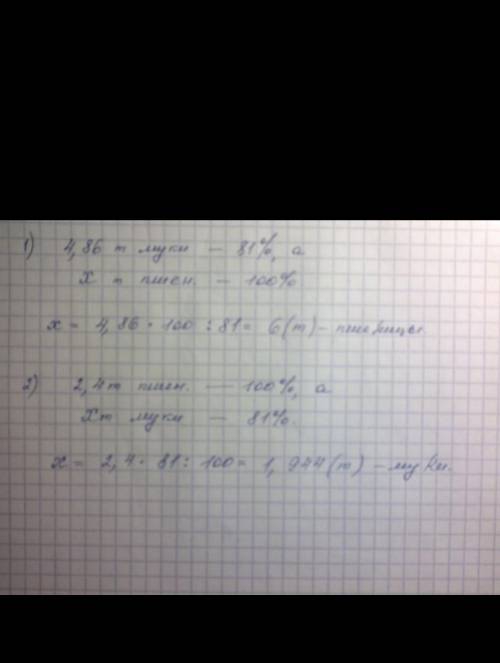 1) 4,86 т муки — 81%, а
х т пшен. — 100%
х = 4,86 · 100 : 81 = 6 (т) - пшеницы.
2) 2,4 т пшен. — 100%, а
Хт муки — 81%.
х = 2,4 · 81 : 100 = 1,944 (т) - муки.